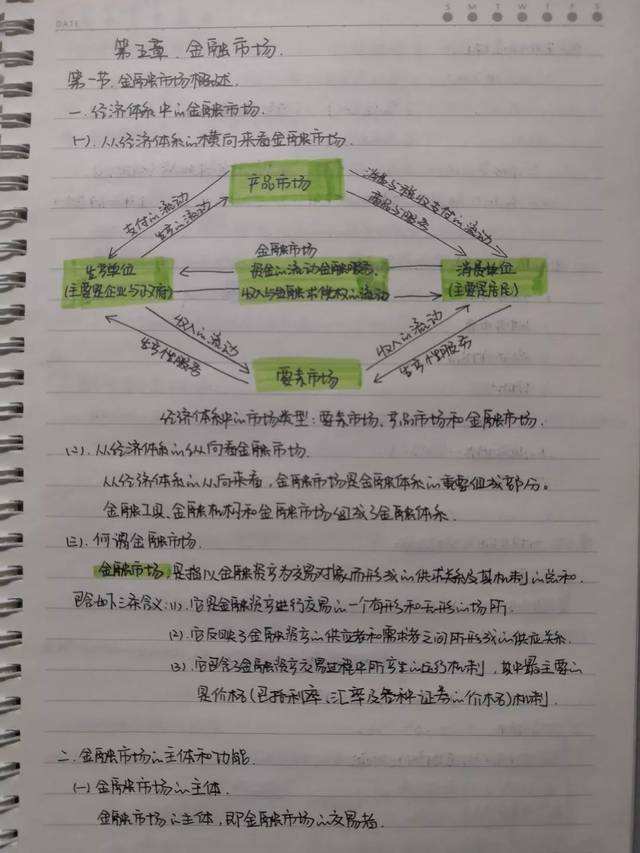 DATE
S M T W T F S
第五章 金融市场.
第一节 金融市场概述.
一.经济体系中的金融市场.
(一).从经济体系的横向来看金融市场.
产品市场
支付的流动
生产的流动
消费与税收支付的流动
商品与服务
金融市场
生产单位
(主要是企业与政府)
资金的流动金融服务.
收入与金融求偿权的流动
消费单位
(主要是居民)
收入的流动
生产性服务
收入的流动
生产性服务
要素市场
经济体系中的市场类型：要素市场、产品市场和金融市场.
(二).从经济体系的纵向看金融市场.
从经济体系的纵向来看，金融市场是金融体系的重要组成部分。
金融工具、金融机构和金融市场组成了金融体系.
(三).何谓金融市场.
金融市场,是指以金融资产为交易对象而形成的供求关系及其机制的总和.
包含如下三条含义：(1).它是金融资产进行交易的一个有形和无形的场所.
(2).它反映了金融资产的供应者和需求者之间所形成的供应关系.
(3).它包含了金融资产交易过程中所产生的运行机制，其中最主要的
是价格(包括利率、汇率及各种证券的价格)机制.
二.金融市场的主体和功能.
(一)金融市场的主体.
金融市场的主体，即金融市场的交易者.